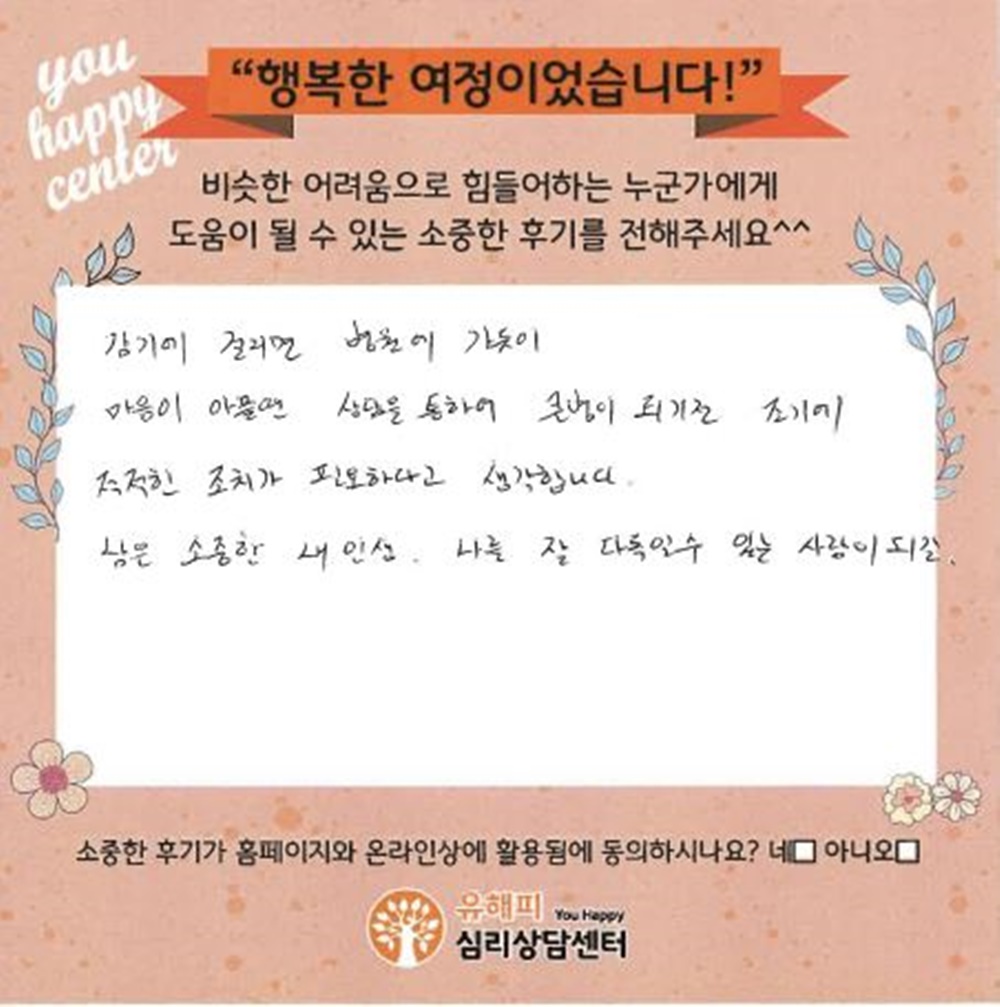 you
happy
center
“행복한 여정이었습니다!”
비슷한 어려움으로 힘들어하는 누군가에게
도움이 될 수 있는 소중한 후기를 전해주세요^^
감기에 걸리면 병원에 가듯이
마음이 아플땐 상담을 통하여 큰병이 되기전 조기에
적적한 조치가 필요하다고 생각합니다.
남은 소중한 내 인생. 나를 잘 다독일수 있는 사람이 되길.
소중한 후기가 홈페이지와 온라인상에 활용됨에 동의하시나요? 네□ 아니오□
유해피 You Happy
심리상담센터